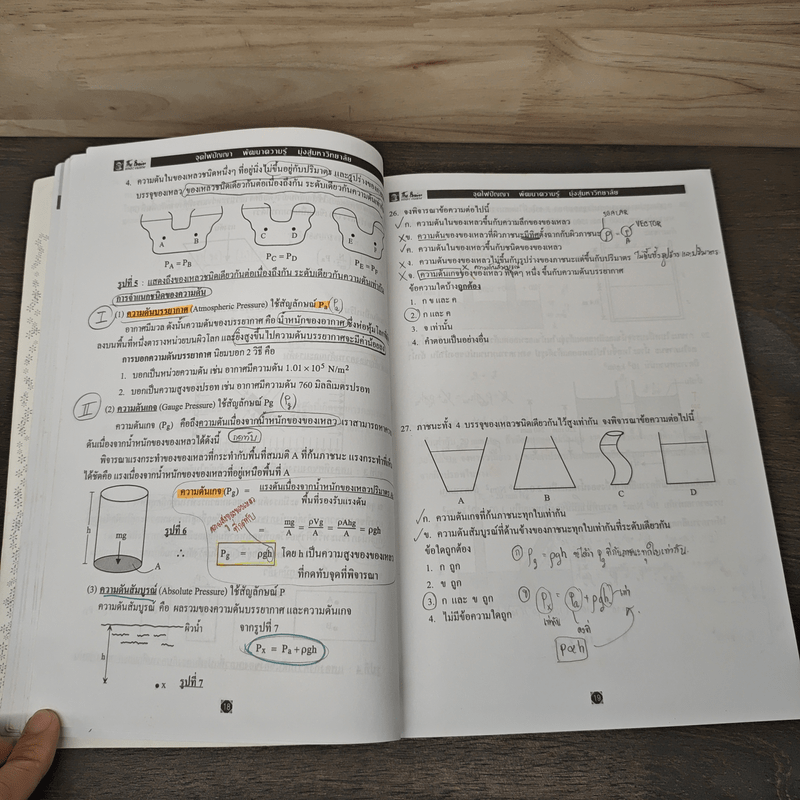 The Brain จุดไฟปัญญา พัฒนาความรู้ มุ่งสู่มหาวิทยาลัย
4. ความดันในของเหลวชนิดหนึ่งๆ ที่อยู่นิ่งไม่ขึ้นอยู่กับปริมาตร และรูปร่างของ
บรรจุของเหลว ของเหลวชนิดเดียวกันต่อเนื่องถึงกัน ระดับเดียวกันความดัน
A B C D E
PA = PB PC = PD PE = P
รูปที่ 5 : แสดงถึงของเหลวชนิดเดียวกันต่อเนื่องถึงกัน ระดับเดียวกันความดันเท่ากัน
การจำแนกชนิดของความดัน
I (1) ความดันบรรยากาศ (Atmospheric Pressure) ใช้สัญลักษณ์ Pa (Pa)
อากาศมีมวล ดังนั้นความดันของบรรยากาศ คือ น้ำหนักของอากาศ ซึ่งห่อหุ้มโลก
ลงบนพื้นที่หนึ่งตารางหน่วยบนผิวโลก และยิ่งสูงขึ้นไปความดันบรรยากาศจะมีค่าน้อยลง
การบอกความดันบรรยากาศ นิยมบอก 2 วิธี คือ
1. บอกเป็นหน่วยความดัน เช่น อากาศมีความดัน 1.01 × 10⁵ N/m²
2. บอกเป็นความสูงของปรอท เช่น อากาศมีความดัน 760 มิลลิเมตรปรอท
II (2) ความดันเกจ (Gauge Pressure) ใช้สัญลักษณ์ Pg (Pg)
ความดันเกจ (Pg) คือถึงความดันเนื่องจากน้ำหนักของของเหลว เราสามารถหา
ดันเนื่องจากน้ำหนักของของเหลวได้ดังนี้ กดทับ
พิจารณาแรงกระทำของของเหลวที่กระทำกับพื้นที่สมมติ A ที่ก้นภาชนะ แรงกระทำที่
ได้ชัดคือ แรงเนื่องจากน้ำหนักของของเหลวที่อยู่เหนือพื้นที่ A
ความดันเกจ (Pg) = แรงดันเนื่องจากน้ำหนักของเหลวปริมาตร
พื้นที่รองรับแรงดัน
h mg A
รูปที่ 6 = mg/A = ρVg/A = ρAhg/A = ρgh
∴ Pg = ρgh โดย h เป็นความสูงของของเหลว
ที่กดทับจุดที่พิจารณา
(3) ความดันสัมบูรณ์ (Absolute Pressure) ใช้สัญลักษณ์ P
ความดันสัมบูรณ์ คือ ผลรวมของความดันบรรยากาศ และความดันเกจ
ผิวน้ำ จากรูปที่ 7
h Px = Pa + ρgh
x รูปที่ 7
18
The Brain จุดไฟปัญญา พัฒนาความรู้ มุ่งสู่มหาวิทยาลัย
26. จงพิจารณาข้อความต่อไปนี้
SCALAR
ก. ความดันในของเหลวขึ้นกับความลึกของของเหลว
ข. ความดันของของเหลวที่ผิวภาชนะมีทิศตั้งฉากกับผิวภาชนะ P = F/A VECTOR
ค. ความดันในของเหลวขึ้นกับชนิดของของเหลว
ง. ความดันของของเหลวไม่ขึ้นกับรูปร่างของภาชนะแต่ขึ้นกับปริมาตร ไม่ขึ้นทั้งรูปร่าง และปริมาตร
จ. ความดันเกจของของเหลว ที่จุดๆ หนึ่ง ขึ้นกับความดันบรรยากาศ
ข้อความใดบ้างถูกต้อง
1. ก ข และ ค
2. ก และ ค
3. จ เท่านั้น
4. คำตอบเป็นอย่างอื่น
27. ภาชนะทั้ง 4 บรรจุของเหลวชนิดเดียวกันไว้สูงเท่ากัน จงพิจารณาข้อความต่อไปนี้
A B C D
ก. ความดันเกจที่ก้นภาชนะทุกใบเท่ากัน
ข. ความดันสัมบูรณ์ที่ด้านข้างของภาชนะทุกใบเท่ากันที่ระดับเดียวกัน
ข้อใดถูกต้อง
1. ก ถูก
2. ข ถูก
3. ก และ ข ถูก
4. ไม่มีข้อความใดถูก
ก Pg = ρgh
ข Px = Pa + ρgh เท่า
เท่ากัน คงที่
P∝h
19